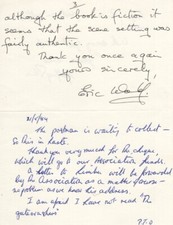 2
although the book is fiction it
seems that the scene setting was
fairly authentic.
Thank you once again
yours sincerely,
Eric
The postman is waiting to collect -
so this in haste
Thank you very much for the cheque,
which will go to our Association funds.
A letter to will be forwarded
by the Association as a matter of
as he has his address.
I am afraid I have not read "The
P.T.O